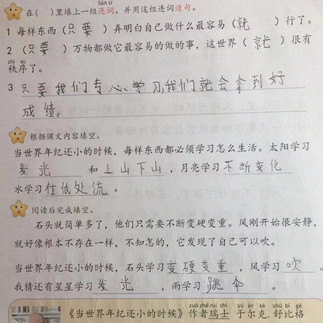 lián cí
在（ ）里填上一组连词。并用这组连词造句。
1 每样东西（只要）弄明白自己做什么最容易（就）行了。
2（只要）万物都做它最容易做的事，这世界（就）很有
秩序了。
3 只要我们专心学习,我们就会拿到好
成绩。
根据课文内容填空。
当世界年纪还小的时候，每样东西都必须学习怎么生活。太阳学习
发光 和 上山下山，月亮学习不断变化
水学习往低处流。
阅读后完成填空。
石头就简单多了，他们只需要不断变硬变重。风刚开始很安静，
就好像根本不存在一样，不知怎的，它发现了自己可以吹。
当世界年纪还小的时候，石头学习变硬变重，风学习吹
我猜还有星星学习发光，雨学习跳伞。
《当世界年纪还小的时候》作者瑞士 于尔克.舒比格